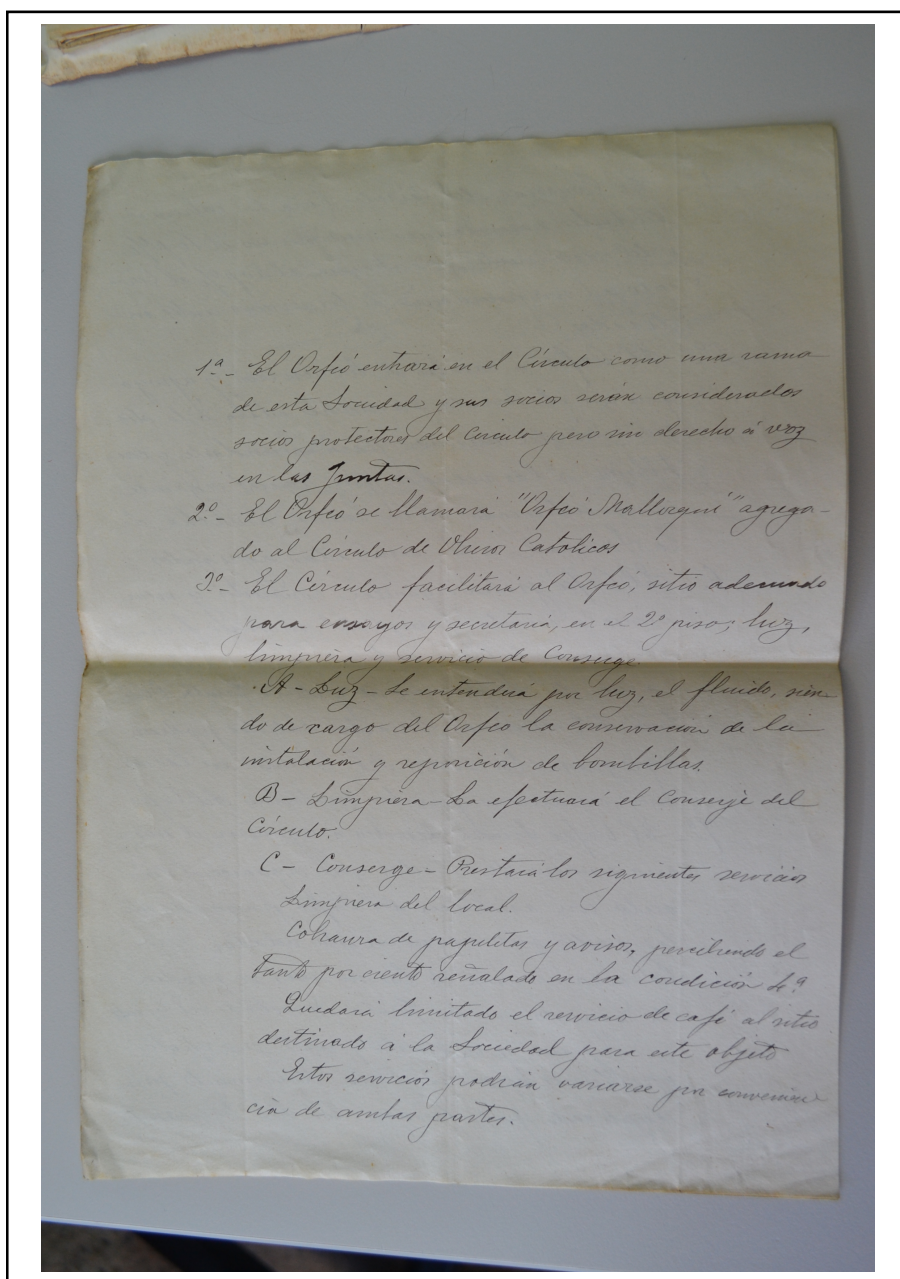 1.ª - El Orfeó entrará en el Círculo como una rama
de esta Sociedad y sus socios serán considerados
socios protectores del Circulo pero sin derecho á voz
en las Juntas.
2.º - El Orfeó se llamará "Orfeó Mallorquí" agrega-
do al Círculo de Obreros Catolicos
3.º - El Círculo facilitará al Orfeó, sitio adecuado
para ensayos y secretaria, en el 2º piso; luz,
limpiera y servicio de Conserge
A - Luz - Se entenderá por luz, el fluido, sien-
do de cargo del Orfeó la conservación de la
instalación y reposición de bombillas.
B - Limpiera - La efectuará el Conserje del
Círculo.
C - Conserge - Prestará los siguientes servicios
Limpiera del local.
Cobranra de papeletas y avisos, percibiendo el
tanto por ciento señalado en la condición 4.ª
Quedará limitado el servicio de café al sitio
destinado á la Sociedad para este objeto
Estos servicios podrán variarse por convenien-
cia de ambas partes.